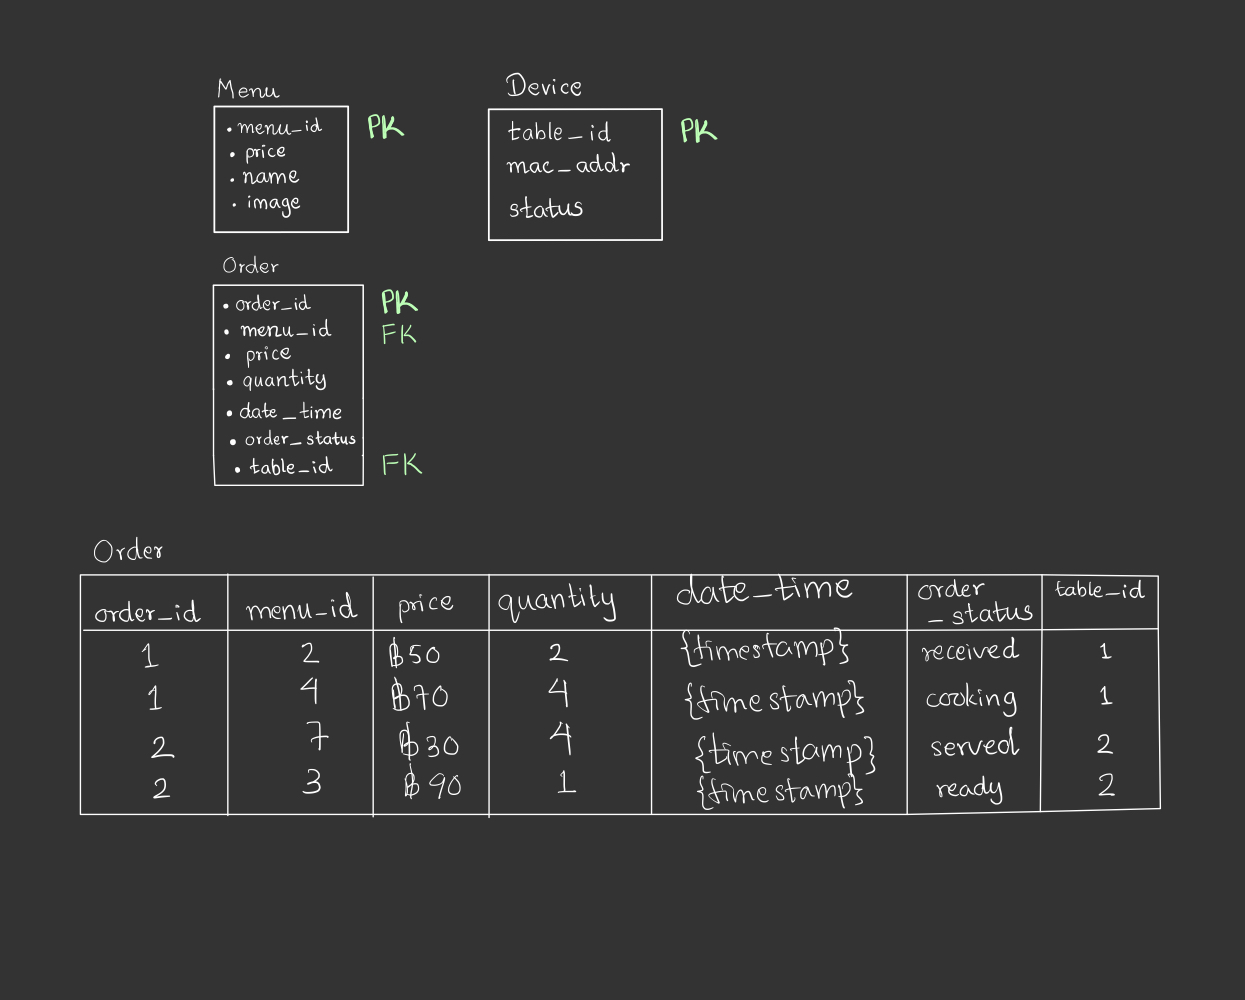 Menu
• menu_id PK
• price
• name
• image
Device
table_id PK
mac_addr
status
Order
• order_id PK
• menu_id FK
• price
• quantity
• date_time
• order_status
• table_id FK
Order
order_id menu_id price quantity date_time order_status table_id
1 2 ฿50 2 {timestamp} received 1
1 4 ฿70 4 {timestamp} cooking 1
2 7 ฿30 4 {timestamp} served 2
2 3 ฿90 1 {timestamp} ready 2